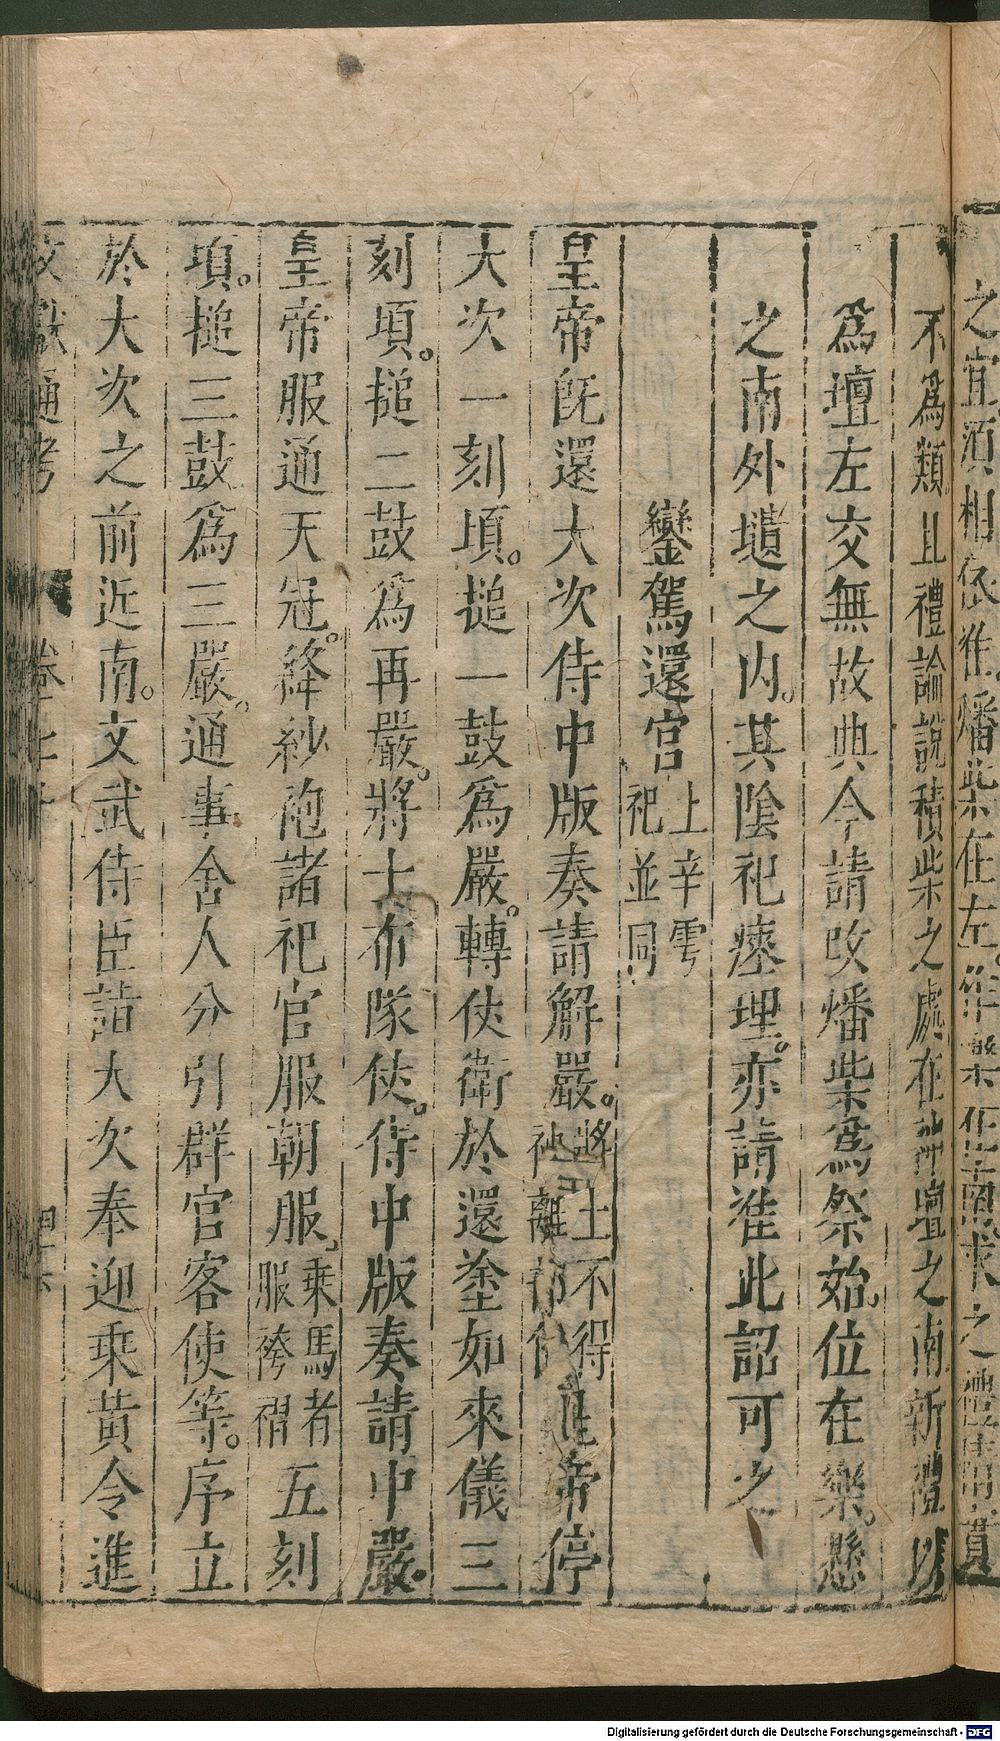 之宜須相依准燔柴在左
不爲類且禮論說積柴之處在神壇之南新禮以
爲壇左交無故典今請改燔柴爲祭始位在樂懸
之南外壝之內其陰祀瘞埋亦請准此詔可之
鑾駕還宫
上辛雩
祀並同
皇帝旣還大次侍中版奏請解嚴
將士不得
離部伍
皇帝停
大次一刻頃搥一鼓爲嚴轉仗衛於還塗如來儀三
刻頃搥二鼓爲再嚴將士布隊仗侍中版奏請中嚴
皇帝服通天冠絳紗袍諸祀官服朝服
乗馬者
服袴褶
五刻
頃搥三鼓爲三嚴通事舍人分引群官客使等序立
於大次之前近南文武侍臣詣大次奉迎乗黃令進
文獻通考
卷七十
Digitalisierung gefördert durch die Deutsche Forschungsgemeinschaft - DFG